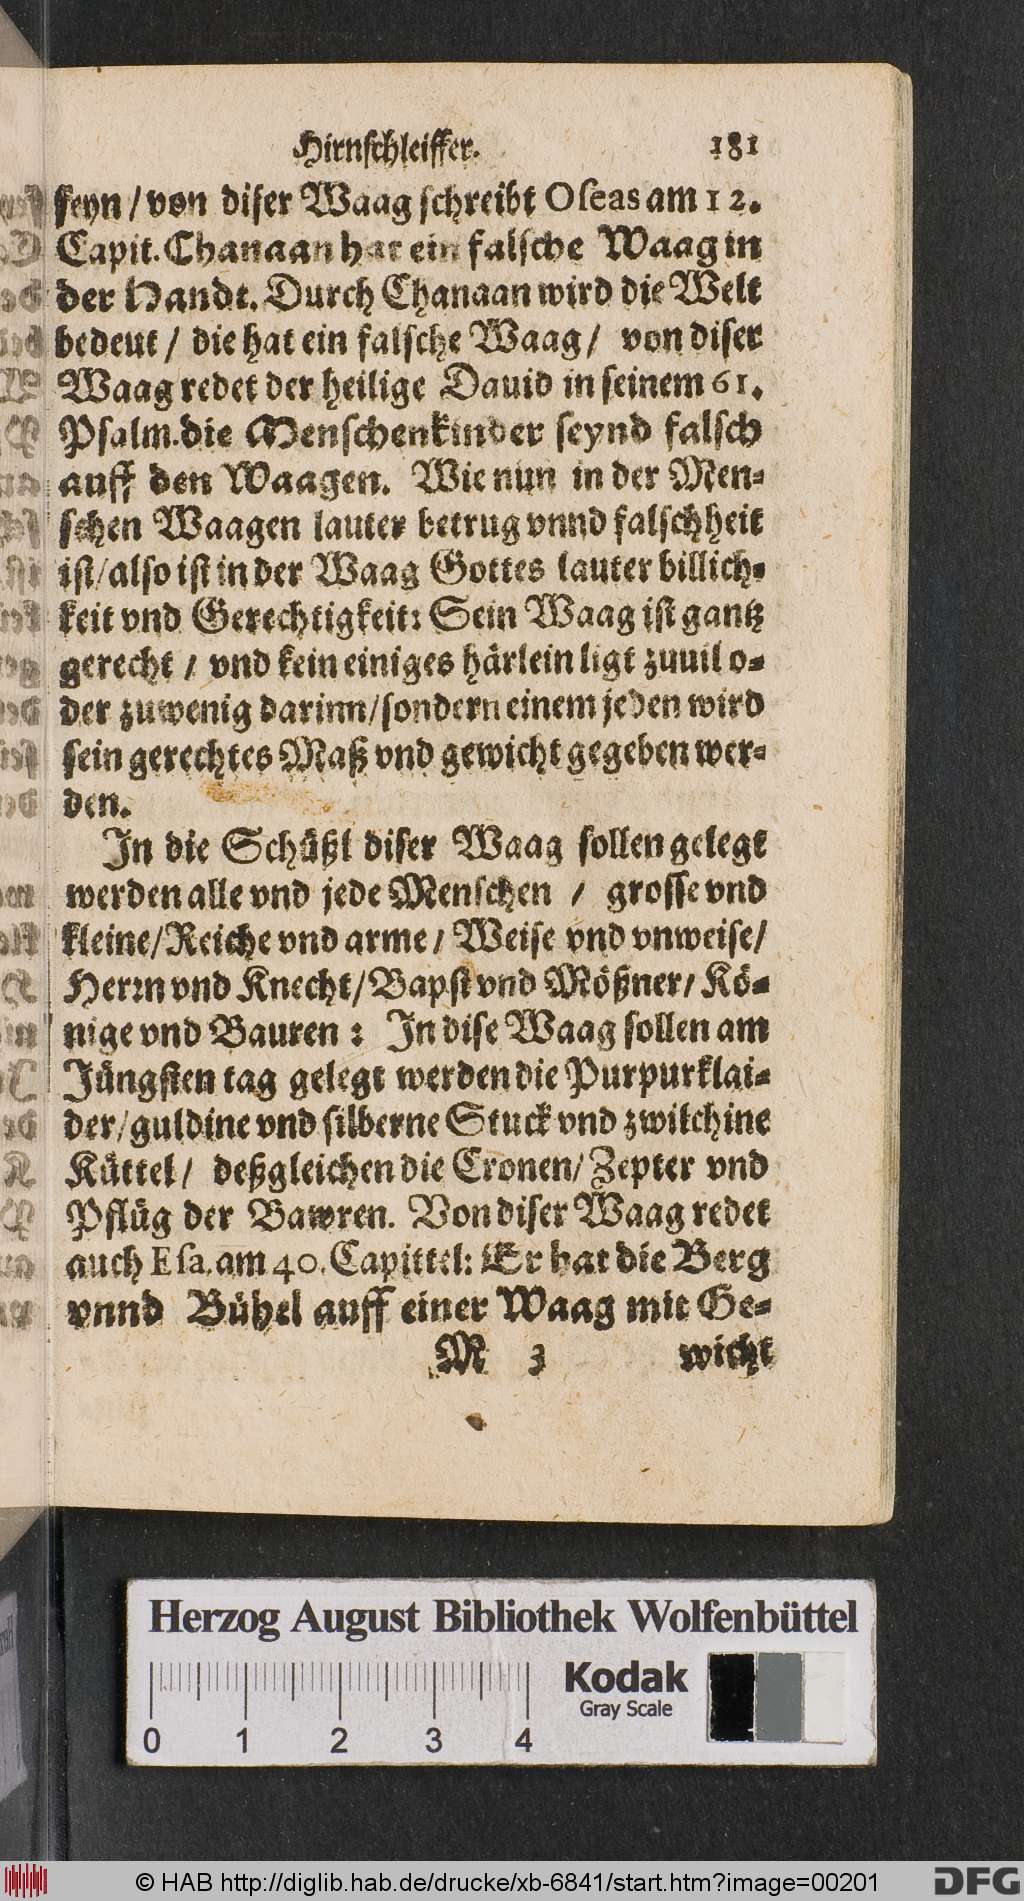 Hirnschleiffer. 181
seyn / von diser Waag schreibt Oseas am 12.
Capit. Chanaan hat ein falsche Waag in
der Handt. Durch Chanaan wird die Welt
bedeut / die hat ein falsche Waag / von diser
Waag redet der heilige Dauid in seinem 61.
Psalm. die Menschenkinder seynd falsch
auff den Waagen. Wie nun in der Men-
schen Waagen lauter betrug vnnd falschheit
ist / also ist in der Waag Gottes lauter billich-
keit vnd Gerechtigkeit: Sein Waag ist gantz
gerecht / vnd kein einiges härlein ligt zuuil o-
der zuwenig darinn / sondern einem jeden wird
sein gerechtes Maß vnd gewicht gegeben wer-
den.
In die Schüßl diser Waag sollen gelegt
werden alle vnd jede Menschen / grosse vnd
kleine / Reiche vnd arme / Weise vnd vnweise /
Herrn vnd Knecht / Bapst vnd Mößner / Kö-
nige vnd Bauren : In dise Waag sollen am
Jüngsten tag gelegt werden die Purpurklai-
der / guldine vnd silberne Stuck vnd zwilchine
Küttel / deßgleichen die Cronen / Zepter vnd
Pflüg der Bawren. Von diser Waag redet
auch Esa. am 40. Capittel: Er hat die Berg
vnnd Bühel auff einer Waag mit Ge-
M 3 wicht
Herzog August Bibliothek Wolfenbüttel
Kodak
Gray Scale
0 1 2 3 4
© HAB http://diglib.hab.de/drucke/xb-6841/start.htm?image=00201
DFG